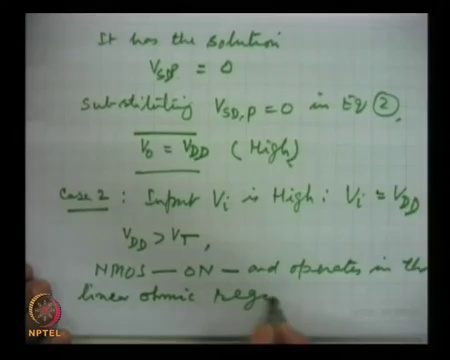 It has the solution
V_SDP = 0
Substituting V_SD,P = 0 in Eq ②,
V_0 = V_DD (High),
Case 2 : Input V_i is High : V_i = V_DD
V_DD > V_T,
NMOS — ON — and operates in the
linear ohmic reg
NPTEL